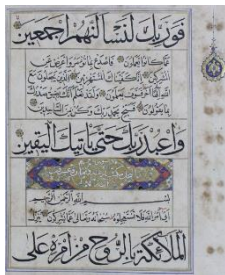 فوربك لنسألنهم اجمعين
عما كانوا يعملون فاصدع بما تؤمر واعرض عن
المشركين انا كفيناك المستهزئين الذين يجعلون مع
الله الها اخر فسوف يعلمون ولقد نعلم انك يضيق صدرك
بما يقولون فسبح بحمد ربك وكن من الساجدين
واعبد ربك حتى يأتيك اليقين
بسم الله الرحمن الرحيم
اتى امر الله فلا تستعجلوه سبحانه وتعالى عما يشركون ينزل
الملائكة بالروح من امره على